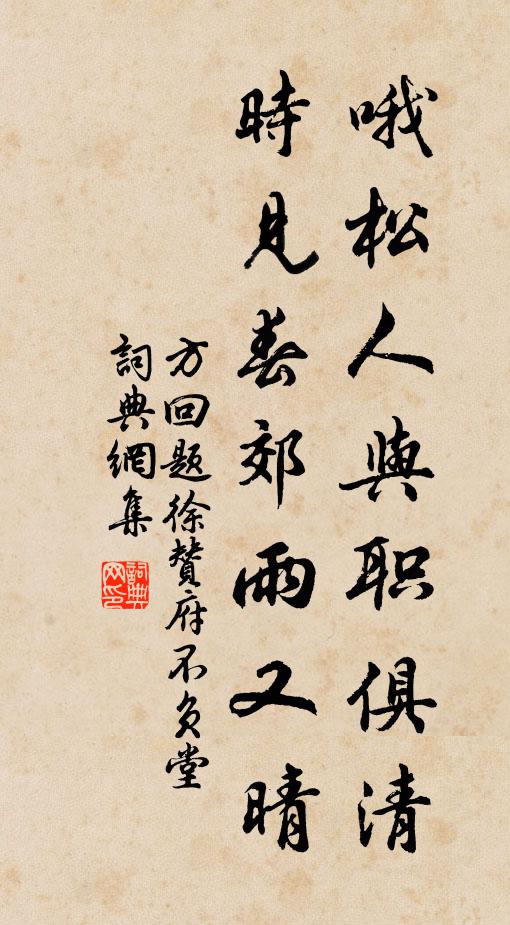 哦松人與职俱清
時見春郊雨又晴
方回題徐賛府不負堂
詞典網集
詞典网印